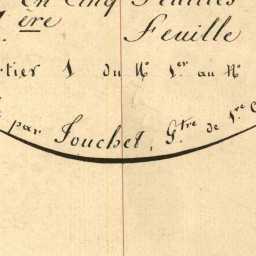 En Cinq Feuilles
1.ère Feuille
rtier 1 du N° 1.er au N°
par Jouchet, G.tre de 1.re C